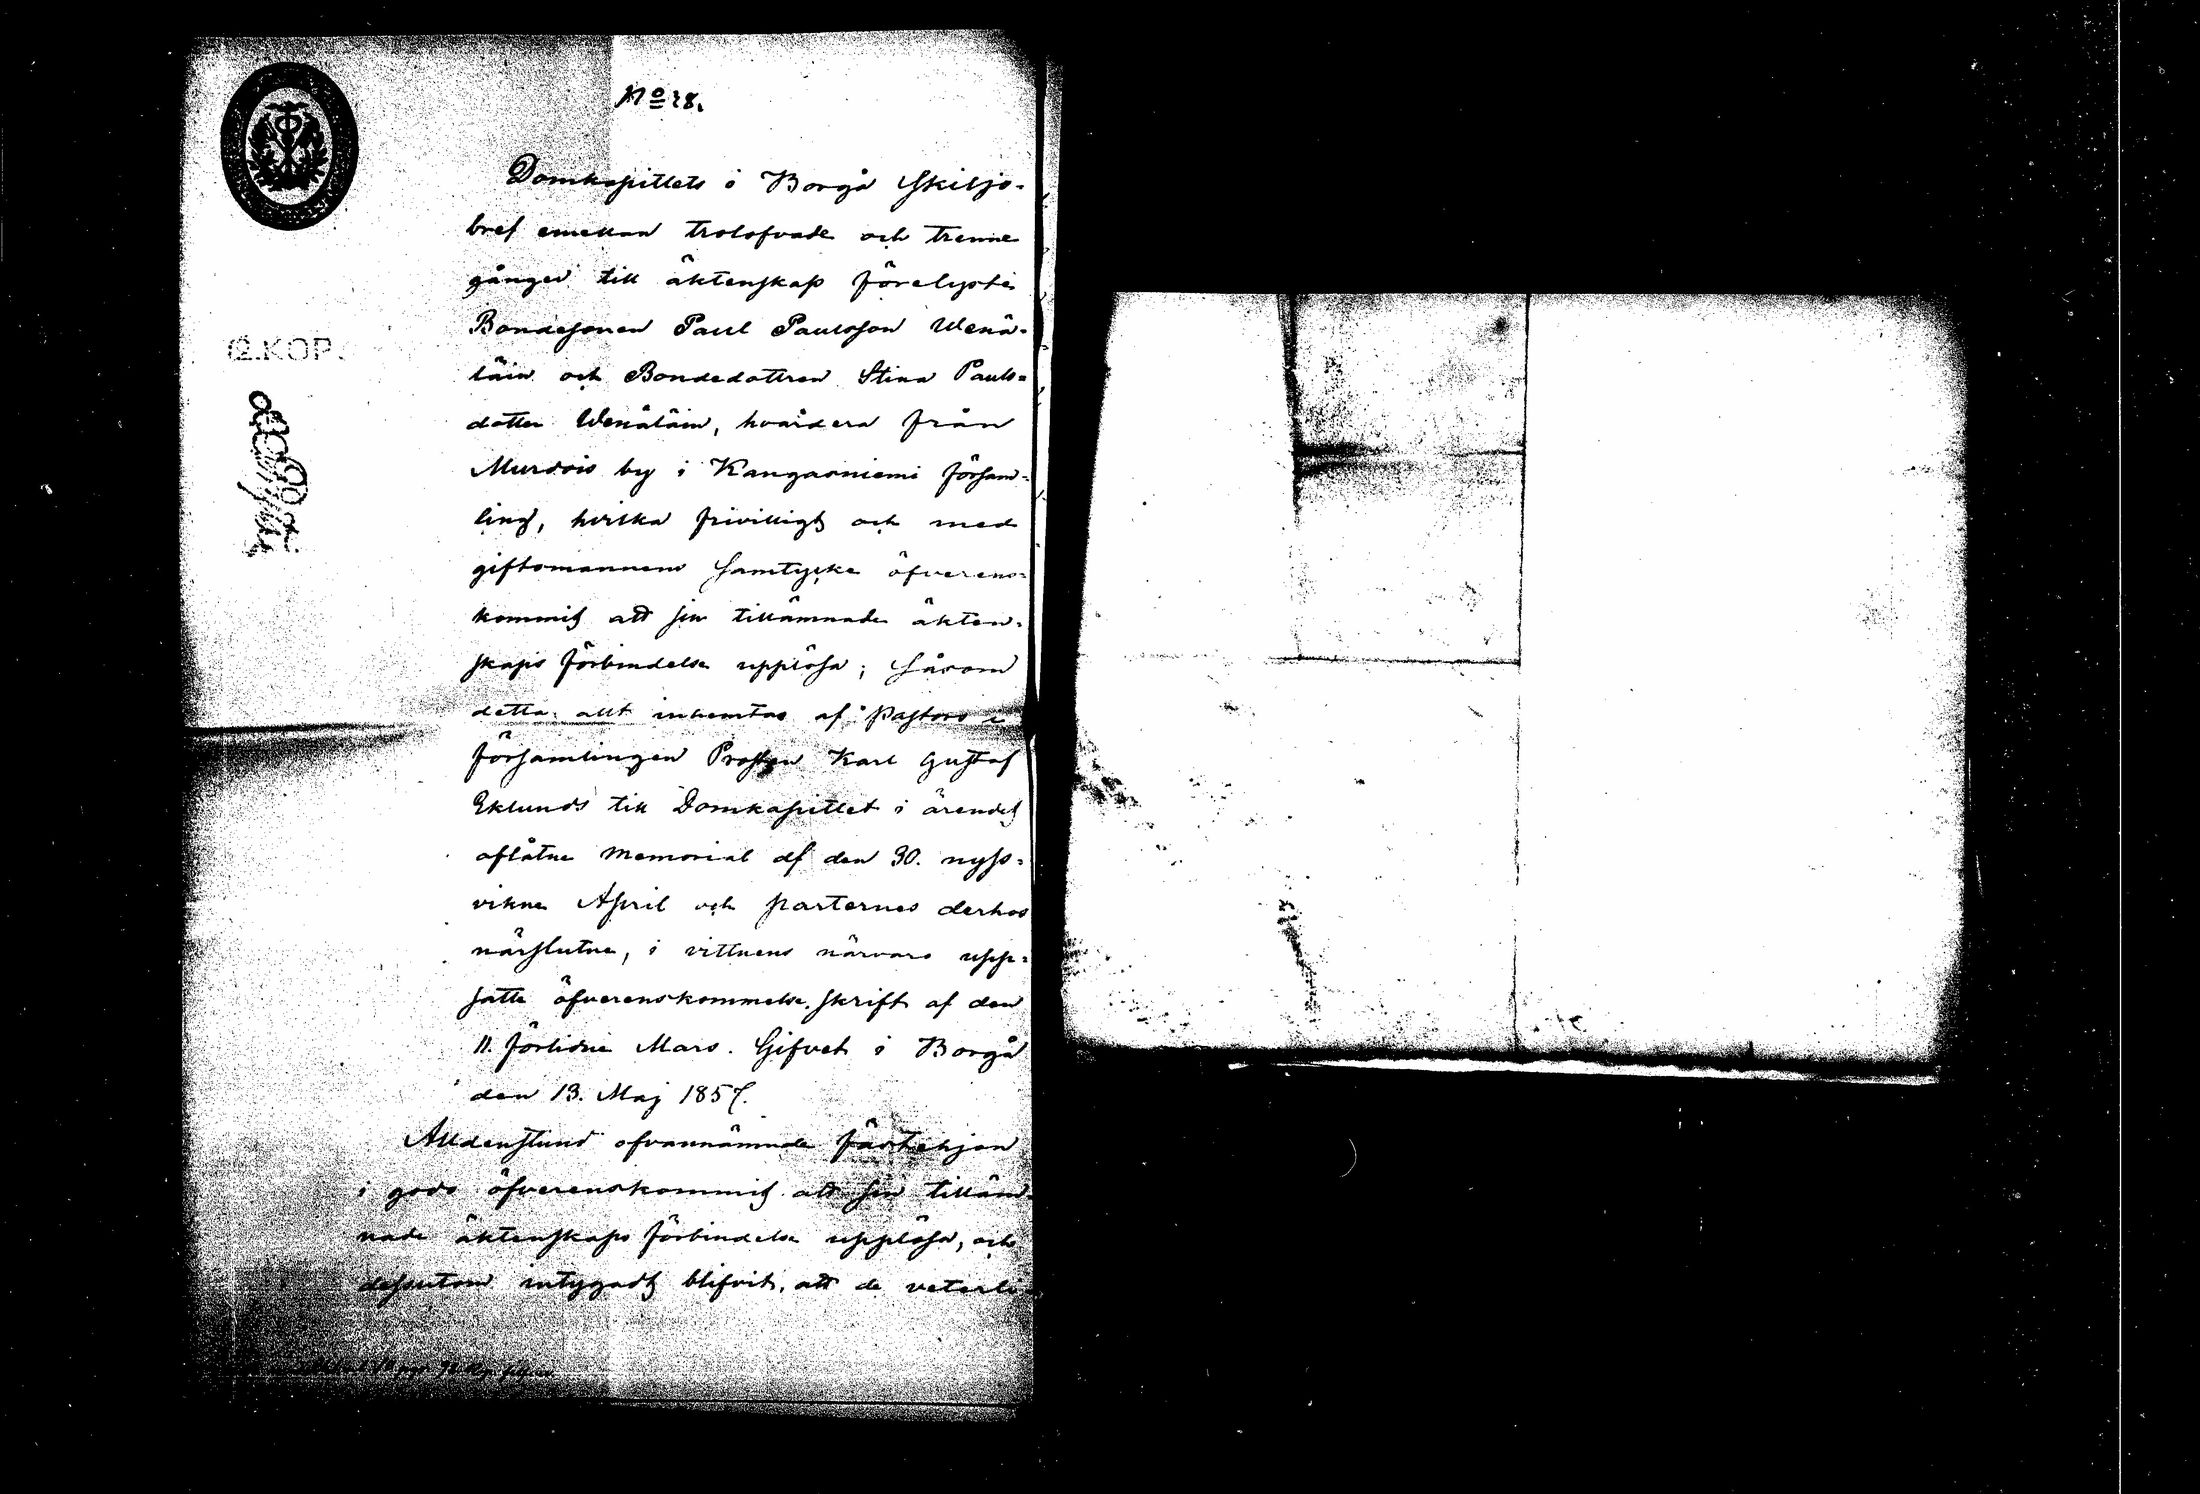 No 28.
Domkapitlets i Borgå Skiljo-
bref emellan trolofvade och trenne
gånger till äktenskap förelyste
Bondesonen Paul Paulsson Wenä-
läin och Bondedottren Stina Pauls-
dotter Wenäläin, hvardera från
Murdois by i Kangasniemi försams-
ling, hvilka frivilligt och med
giftomannens samtycke öfverens-
kommit att sin tillämnade äkten-
skaps förbindelse upplösa; såsom
detta allt inhemtas af Pastors i
församlingen Prosten Karl Gustaf
Eklunds till Domkapitlet i ärendet
aflåtne Memorial af den 30. nyss-
vikne April och parternes derhos
närslutne, i vittnens närvaro upp-
satte öfverenskommelse skrift af den
11. förlidne Mars. Gifvet i Borgå
den 13. Maj 1857.
Alldenstund ofvannämnde fästehjon
i godo öfverenskommit att sin tilläm-
nade äktenskaps förbindelse upplösa, och
dessutom intygadt blifvit, att de veterli-
12.KOP.